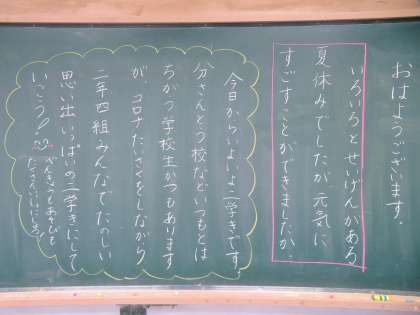 おはようございます。
いろいろとせいげんがある
夏休みでしたが元気に
すごすことができましたか。
今日からいよいよ二学きです。
分さんとう校などいつもとは
ちがう学校生かつもあります
が、コロナたいさくをしながら
二年四組みんなでたのしい
思い出いっぱいの二学きにして
いこう!
べんきょうもあそびも
たくさん